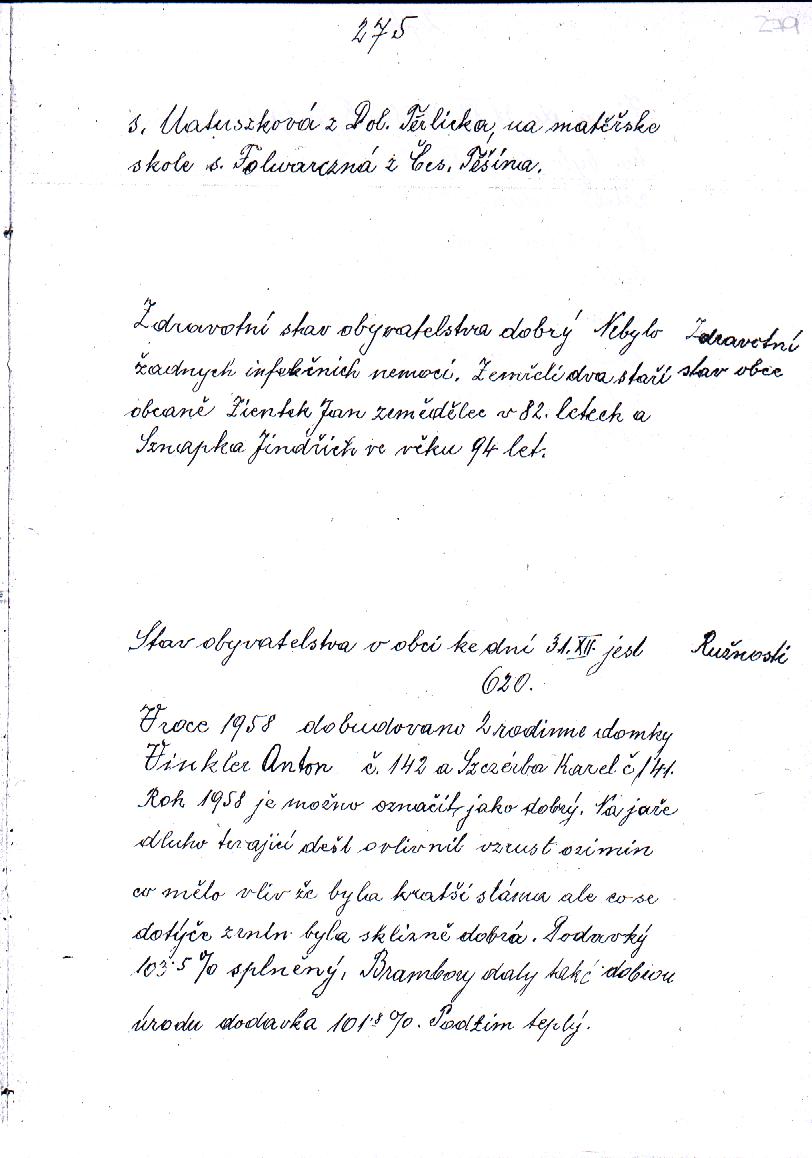 275
279
s. Matuszková z Dol. Těrlicka, na matěřske
skole s. Folwarczná z Čes. Těšína.
Zdravotní stav obyvatelstva dobrý Nebylo
Zdravotní
žadnych infekčnich nemocí. Zemřeli dva staří
stav obce
obcaně Zientek Jan zemědělec v 82. letech a
Sznapka Jindřich ve věku 94 let.
Stav obyvatelstva v obci ke dni 31. XII. jest
Ružnosti
620.
V roce 1958 dobudovano 2 rodinne domky
Vinkler Anton č. 142 a Szczerba Karel č 141.
Rok 1958 je možno označit, jako dobrý. Na jaře
dluho trvající dešt ovlivnil vzrust ozimin
co mělo vliv že byla kratší sláma ale co se
dotýče zrnin byla sklizně dobrá. Dodavký
103·5 % splněný. Brambory daly také dobrou
úrodu dodavka 101·8 %. Podzim teplý.